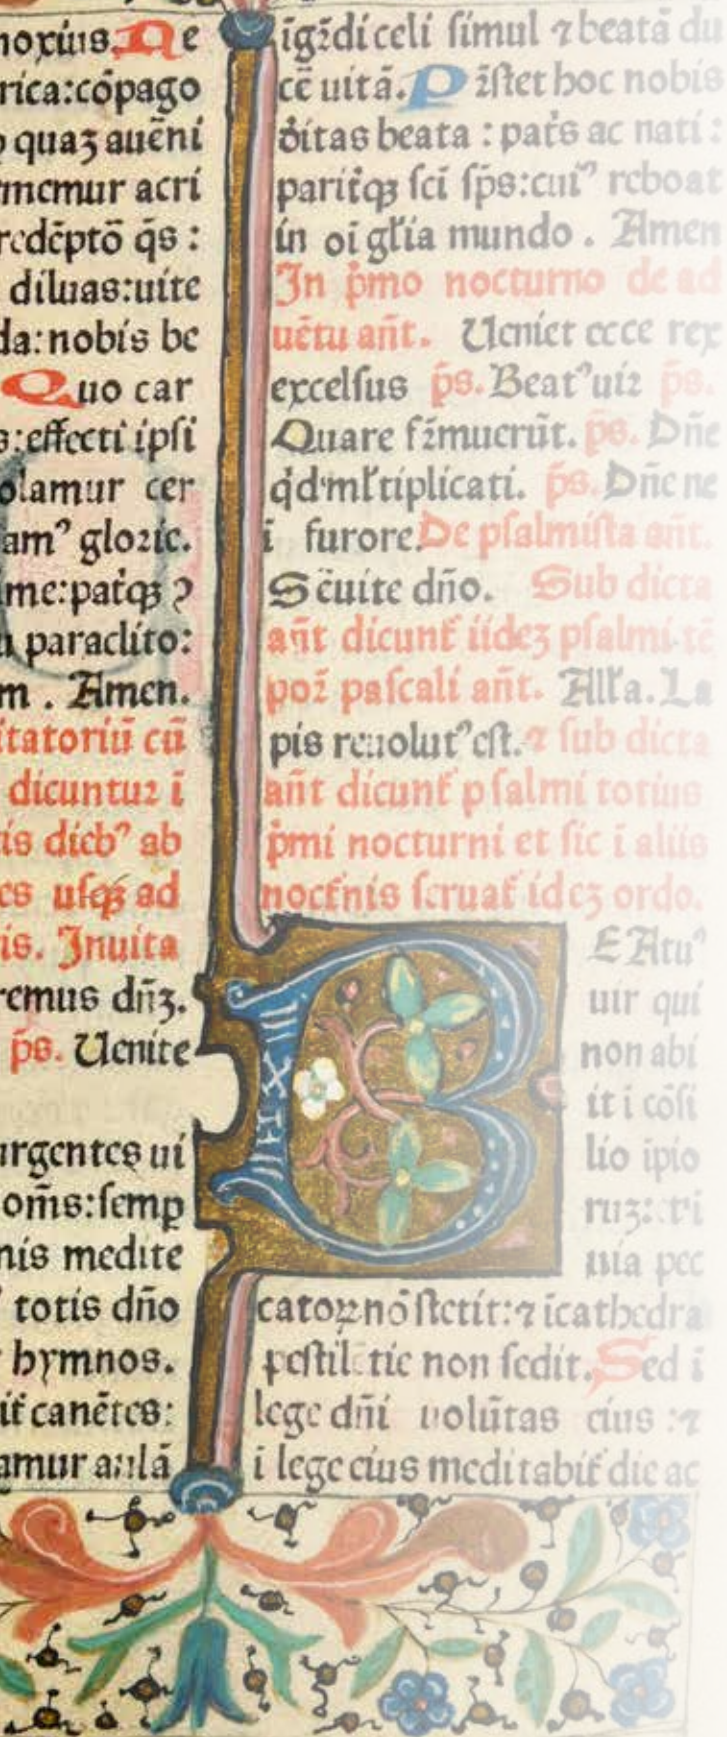 noxius. Ne
rica:cōpago
quaꝫ auēni
memur acri
redēptō q̄s :
diluas:uite
da: nobis be
Quo car
s:effecti ipsi
olamur cer
amꝰ glorie.
me:patꝙꝫ ?
u paraclito:
m . Amen.
itatoriū cū
dicuntur ī
is diebꝰ ab
es usqꝫ ad
is. Inuita
remus dn̄ꝫ.
ps̄. Uenite
urgentes ui
om̄s:semp
nis medite
totis dn̄o
hymnos.
it canētes:
amur aulā
īgr̄di celi simul ⁊ beatā du
cē uitā. Pr̄stet hoc nobis
ditas beata : patr̄s ac nati :
paritꝙꝫ sc̄i sp̄s:cuiꝰ reboat
in oī gl̄ia mundo . Amen
In p̄mo nocturno de ad
uētu an̄t. Ueniet ecce rex
excelsus ps̄. Beatꝰ uir ps̄.
Quare fr̄muerūt. ps̄. Dn̄e
qd' ml̄tiplicati. ps̄. Dn̄e ne
ī furore. De psalmista an̄t.
Sēuite dn̄o. Sub dicta
an̄t dicunt̄ iideꝫ psalmi tē
por̄ pascali an̄t. All̄a. La
pis reuolutꝰ est. ⁊ sub dicta
an̄t dicunt̄ psalmi totius
p̄mi nocturni et sic ī aliis
noct̄nis seruat̄ ideꝫ ordo.
BEAtuꝰ
uir qui
non abi
it i cōsi
lio ipio
ruꝫ: et i
uia pec
catoꝝ nō stetit: ⁊ ī cathedra
pestilētie non sedit. Sed ī
lege dn̄i uolūtas eius : ⁊
i lege eius meditabit̄ die ac